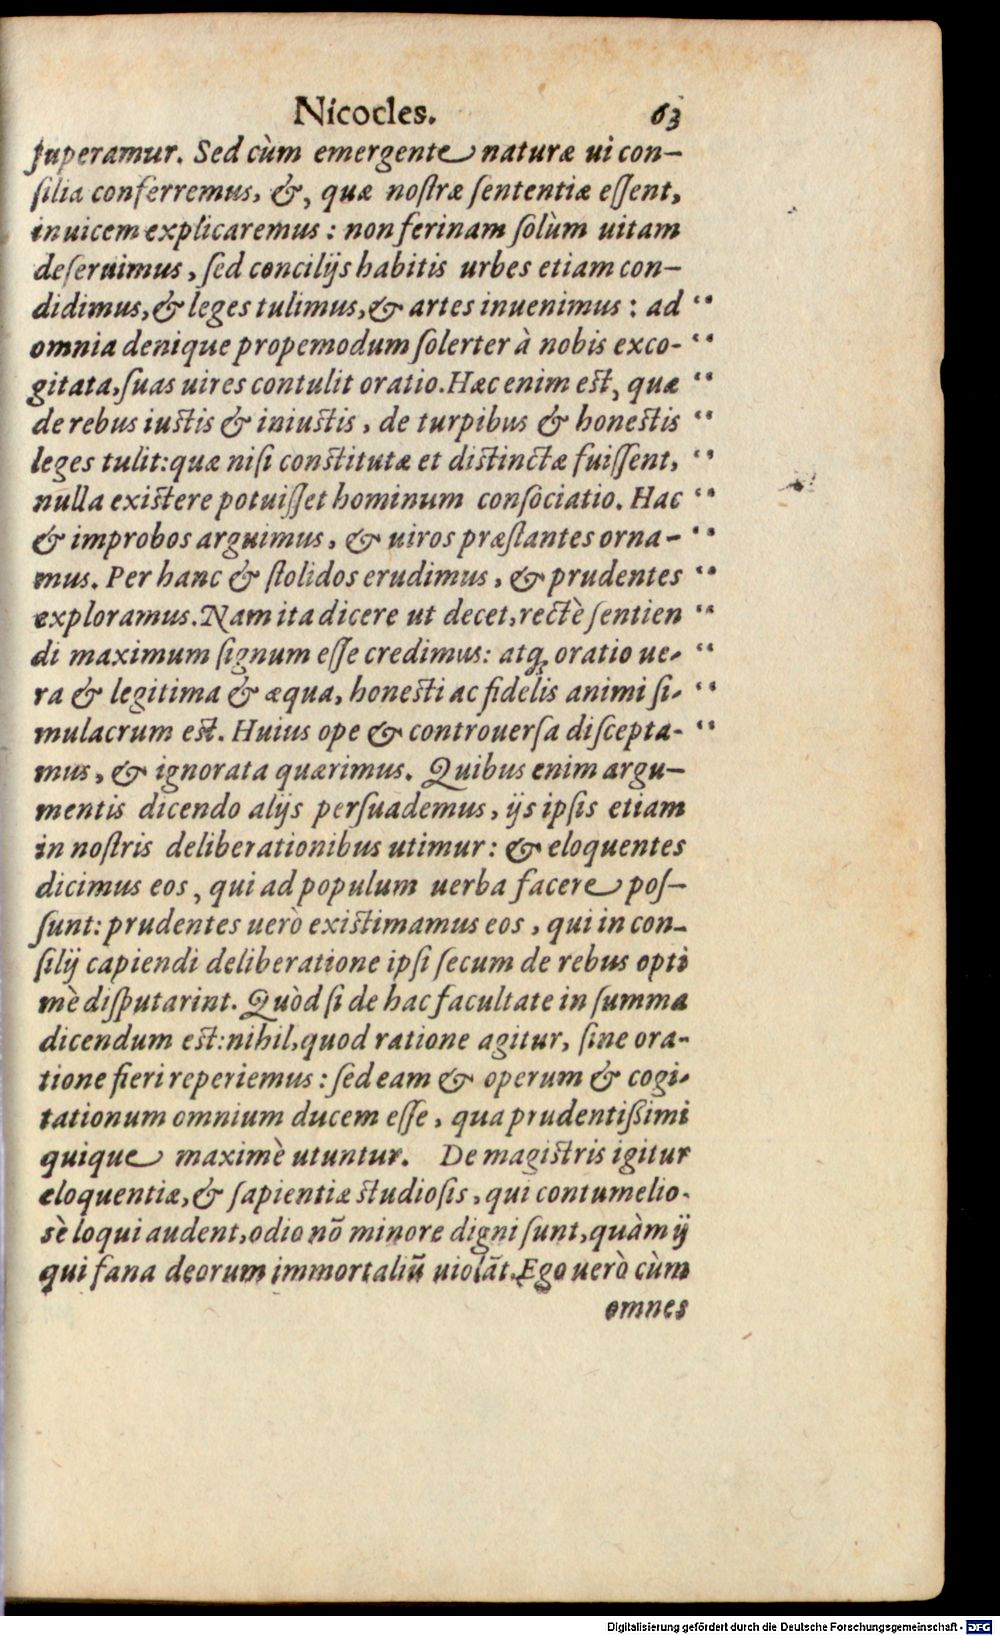 Nicocles. 63
ſuperamur. Sed cùm emergente naturæ ui con–
ſilia conferremus, &, quæ noſtræ ſententiæ eſſent,
inuicem explicaremus : non ferinam ſolùm uitam
deſeruimus, ſed concilijs habitis urbes etiam con–
didimus, & leges tulimus, & artes inuenimus : ad “
omnia denique propemodum ſolerter à nobis exco- “
gitata, ſuas uires contulit oratio. Hæc enim eſt, quæ “
de rebus iuſtis & iniuſtis, de turpibus & honeſtis “
leges tulit: quæ niſi conſtitutæ et diſtinctæ fuiſſent, “
nulla exiſtere potuiſſet hominum conſociatio. Hac “
& improbos arguimus, & uiros præſtantes orna- “
mus. Per hanc & ſtolidos erudimus, & prudentes “
exploramus. Nam ita dicere ut decet, rectè ſentien “
di maximum ſignum eſſe credimus: atq; oratio ue- “
ra & legitima & æqua, honeſti ac fidelis animi ſi- “
mulacrum eſt. Huius ope & controuerſa diſcepta- “
mus, & ignorata quærimus. Quibus enim argu–
mentis dicendo alijs perſuademus, ijs ipſis etiam
in noſtris deliberationibus utimur : & eloquentes
dicimus eos, qui ad populum uerba facere poſ–
ſunt: prudentes uerò exiſtimamus eos, qui in con-
ſilij capiendi deliberatione ipſi ſecum de rebus opti
mè diſputarint. Quòd ſi de hac facultate in ſumma
dicendum eſt: nihil, quod ratione agitur, ſine ora-
tione fieri reperiemus : ſed eam & operum & cogi-
tationum omnium ducem eſſe, qua prudentißimi
quique maximè utuntur. De magiſtris igitur
eloquentiæ, & ſapientiæ ſtudioſis, qui contumelio-
sè loqui audent, odio nõ minore digni ſunt, quàm ij
qui fana deorum immortaliũ uiolãt. Ego uerò cùm
omnes
Digitalisierung gefördert durch die Deutsche Forschungsgemeinschaft - DFG